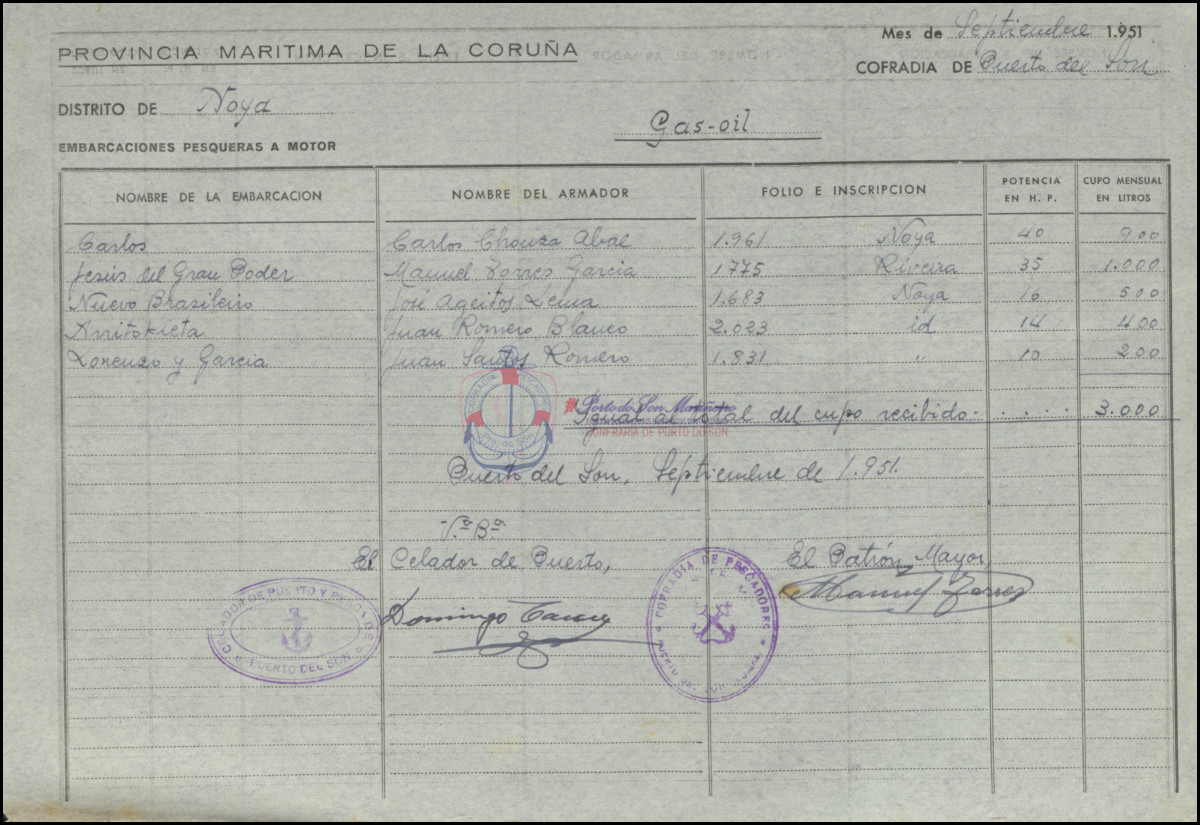 Mes de Septiembre 1.951
PROVINCIA MARITIMA DE LA CORUÑA
COFRADIA DE Puerto del Son
DISTRITO DE Noya
Gas-oil
EMBARCACIONES PESQUERAS A MOTOR
NOMBRE DE LA EMBARCACION NOMBRE DEL ARMADOR FOLIO E INSCRIPCION POTENCIA EN H. P. CUPO MENSUAL EN LITROS
Carlos Carlos Chouza Abal 1.961 Noya 40 900
Jesús del Gran Poder Manuel Torres Garcia 1775 Riveira 35 1.000
Nuevo Brasileiro José Ageitos 1.683 Noya 16 500
Arritokieta Juan Romero Blanco 2.023 id 14 400
Lorenzo y Garcia Juan Santos Romero 1.831 " 10 200
Porto do Son Mariñeiro
Igual al total del cupo recibido. . . . . 3.000
CONFRARIA DE PORTO DO SON
Puerto del Son, Septiembre de 1.951.
Vº Bº
El Celador de Puerto, El Patrón Mayor
Manuel Torres
Domingo
CELADOR DE PUERTO Y PESCA DE
PUERTO DEL SON
COFRADIA DE PESCADORES
PUERTO DEL SON